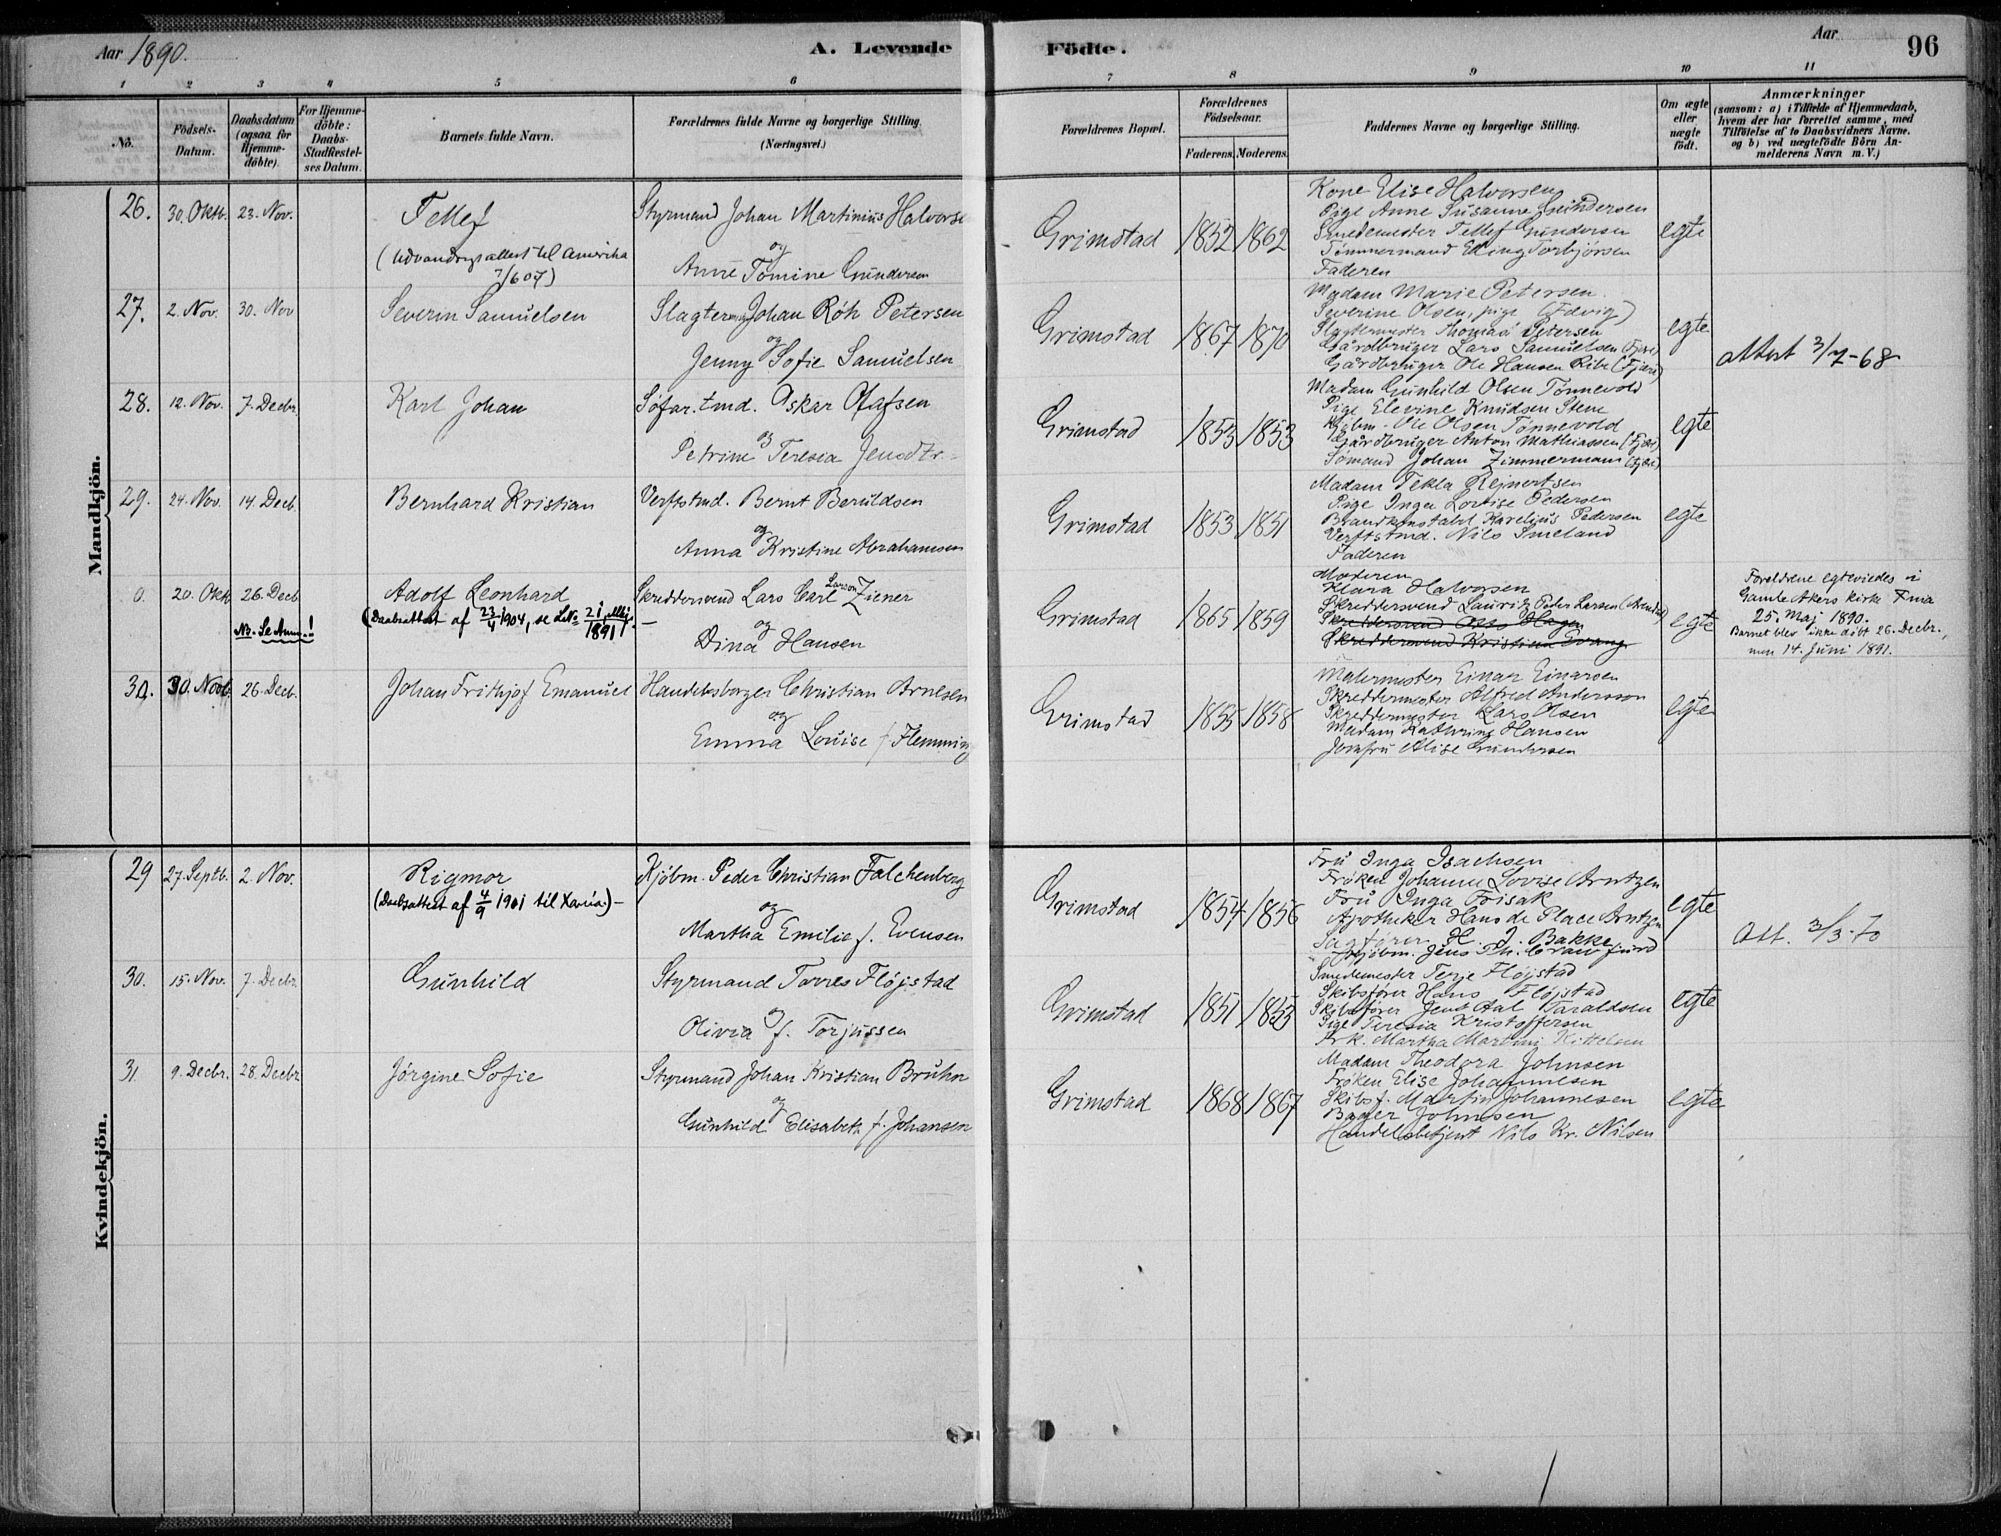 Aar 1890.
A. Levende
Födte.
Aar
96
1 2 3 4 5 6 7 8 9 10 11
No.
Födsels-
Datum.
Daabsdatum
(ogsaa for
Hjemme-
döbte).
For Hjemme-
döbte:
Daabs-
Stadfæstel-
ses Datum.
Barnets fulde Navn.
Forældrenes fulde Navne og borgerlige Stilling.
(Næringsvei.)
Forældrenes Bopæl.
Forældrenes
Födselsaar.
Faderens.
Moderens.
Faddernes Navne og borgerlige Stilling.
Om ægte
eller
uægte
födt.
Anmærkninger
(saasom: a) i Tilfælde af Hjemmedaab,
hvem der har forrettet samme, med
Tilföielse af to Daabsvidners Navne.
og b) ved uægtefödte Börn An-
melderens Navn m.V.)
Mandkjön.
26. 30. Oktb. 23. Nov.
Tellef
(Udvandrgsattest til Amerika
7/6 07)
Styrmand Johan Martinius Halvorse
og
Anne Tomine Gundersen
Grimstad 1852 1862
Kone Elise Halvorsen
Pige Anne Susanne Gundersen
Smedemester Tellef Gundersen
Tømmermand Elling Torbjørsen
Faderen
egte
27. 2. Nov. 30. Nov
Severin Samuelsen
Slagter Johan Röh Petersen
og
Jenny Sofie Samuelsen
Grimstad 1867 1870
Madam Marie Petersen.
Severine Olsen, pige
Slagtermester Thomas Petersen
Gårdbruger Lars Samuelsen (Fjære)
Gårdbruger Ole Hansen Ribe (Fjære)
egte
attest 3/7-68
28. 12. Nov. 7. Decbr.
Karl Johan
Söfar.tmd. Oskar Olafsen
og
Petrine Teresia Jensdtr.
Grimstad 1853 1853
Madam Gunhild Olsen Tønnevold
Pige Elevine Knudsen Stene
Kjøbm. Ole Olsen Tønnevold
Gårdbruger Anton Mathiassen (Fjære)
Sømand Johan Zimmermann (Fjære)
egte
29. 24. Nov. 14. Decb.
Bernhard Kristian
Verftstmd. Bernt Beruldsen
og
Anna Kristine Abrahamsen
Grimstad 1853 1851
Madam Tekla Rejnertsen
Pige Inga Lovise Pedersen
Brandkonstabel Karelius Pedersen
Verftstmd. Nils Smeland
Faderen
egte
0. 20. Okt. 26. Decb
NB. Se Anm.!
Adolf Leonhard
(Daabsattest af 23/4 1904, se L.No 21 1891)
Skreddersvend Lars Carl Larson Ziener
og
Dina Hansen
Grimstad 1865 1859
Moderen
Klara Halvorsen
Skreddersvend Lauritz Peder Larsen (Arendal)
Skreddersvend Otto Hagen
Skreddersvend Kristian Evang
egte
Forældrene egteviedes i
Gamle Akers kirke Xnia
25. Maj 1890.
Barnet blev ikke døbt 26. Decbr.,
men 14. Juni 1891.
30. 30. Novb. 26. Decb.
Johan Frithjof Emanuel
Handelsborger Christian Arnesen
og
Emma Louise f. Flemming
Grimstad 1855 1858
Malermester Einar Einarsen
Skreddermester Alfred Andersson
Skreddermester Lars Olsen
Madam Kathrine Hansen
Jomfru Alise Gundersen
egte
Kvindekjön.
29 27. Septb. 2. Nov.
Rigmor
(Daabsattest af 4/9 1901 til Xania)
Kjöbm. Peder Christian Falchenberg
og
Martha Emilie f. Evensen
Grimstad 1854 1856
Fru Inga Isachsen
Frøken Johanne Lovise Arntzen
Fru Inga Frisak
Apotheker Hans de Place Arntzen
Sagfører H. J. Bakke
Kjøbm. Jens Th. Crawfurd
egte
Att. 3/3-70
30. 15. Nov. 7. Decbr.
Gunhild
Styrmand Torres Fløjstad
og
Olivia f. Torjussen
Grimstad 1851 1855
Smedemester Terje Fløjstad
Skibsfører Hans Fløjstad
Skibsfører Jens Aal Taraldsen
Pige Teresia Kristoffersen
Frk. Martha Martini Kittelsen
egte
31. 9. Decbr. 28. Decbr
Jörgine Sofie
Styrmand Johan Kristian Bruhn
og
Gunhild Elisabeth f. Johansen
Grimstad 1868 1867
Madam Theodora Johnsen
Frøken Elise Johannesen
Skibsf. Martin Johannesen
Bager Johnsen
Handelsbetjent Nils Kr. Nilsen
egte